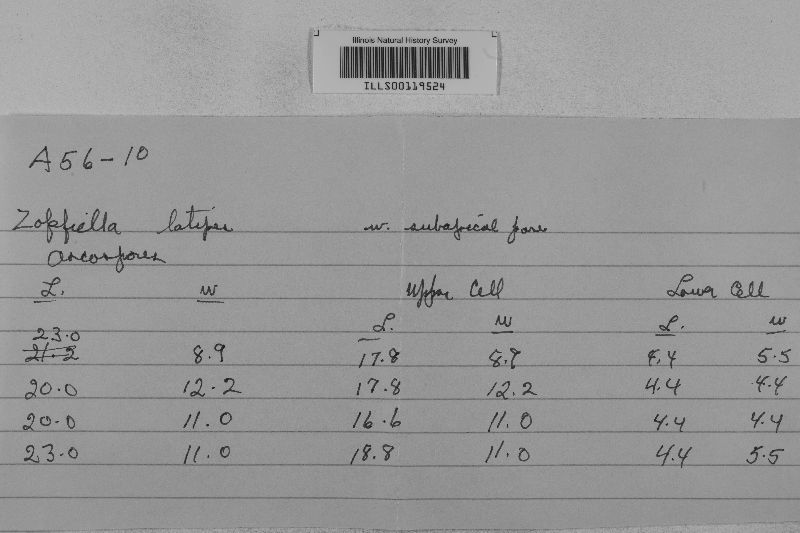 Illinois Natural History Survey
ILLS00119524
A56-10
Zopfiella latipes w. subapical pore
ascospores
L. W Upper Cell Lower Cell
L. W L. W
23.0
21.2 8.9 17.8 8.9 4.4 5.5
20.0 12.2 17.8 12.2 4.4 4.4
20.0 11.0 16.6 11.0 4.4 4.4
23.0 11.0 18.8 11.0 4.4 5.5